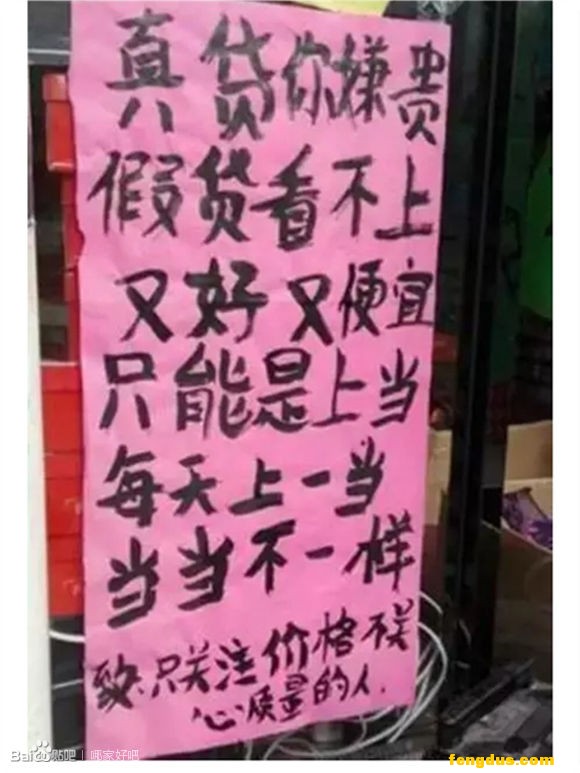 真货你嫌贵
假货看不上
又好又便宜
只能是上当
每天上一当
当当不一样
致:只关注价格不关
心质量的人.
Bai贴吧 | 哦家好吧
fengdus.com